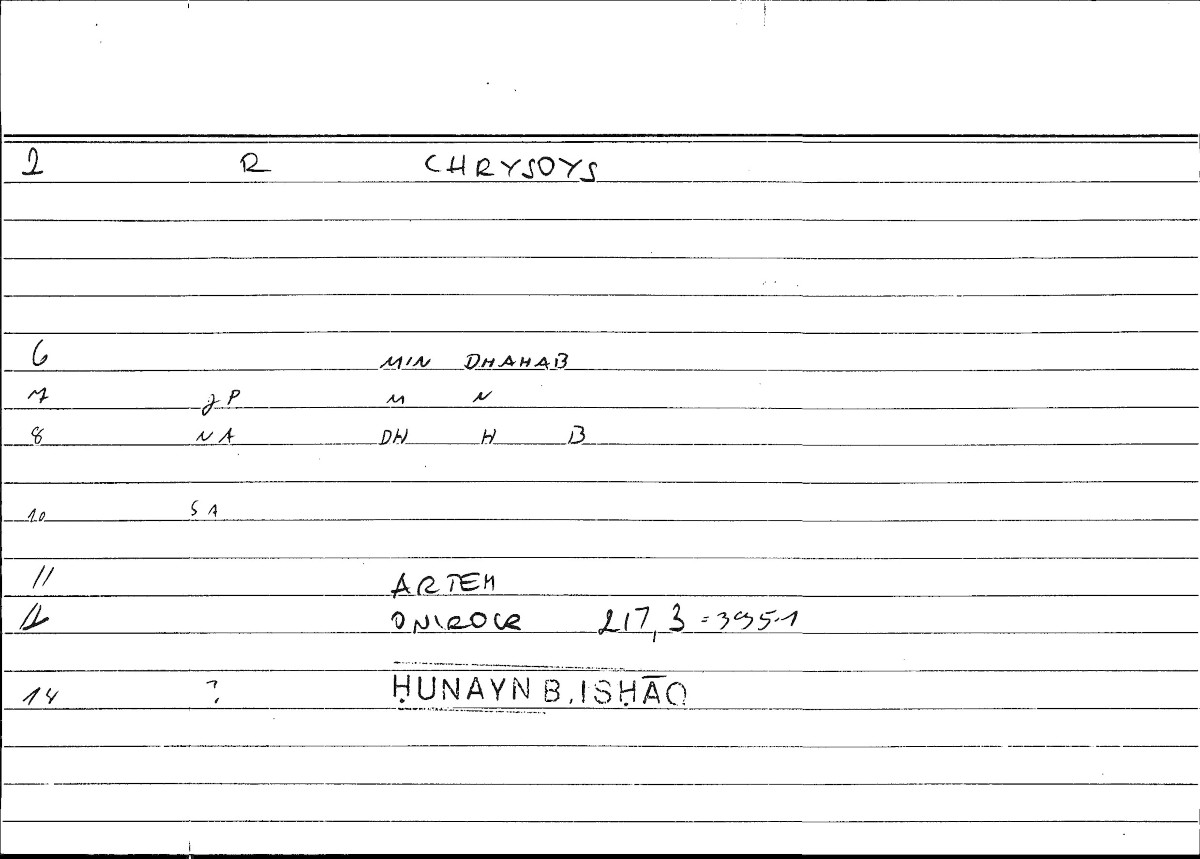 2 R CHRYSOYS
6 MIN DHAHAB
7 gP M N
8 NA DH H B
10 SA
11 ARTEM
12 ONIROCR 217,3 = 395.1
14 ? ḤUNAYN B. ISḤĀQ